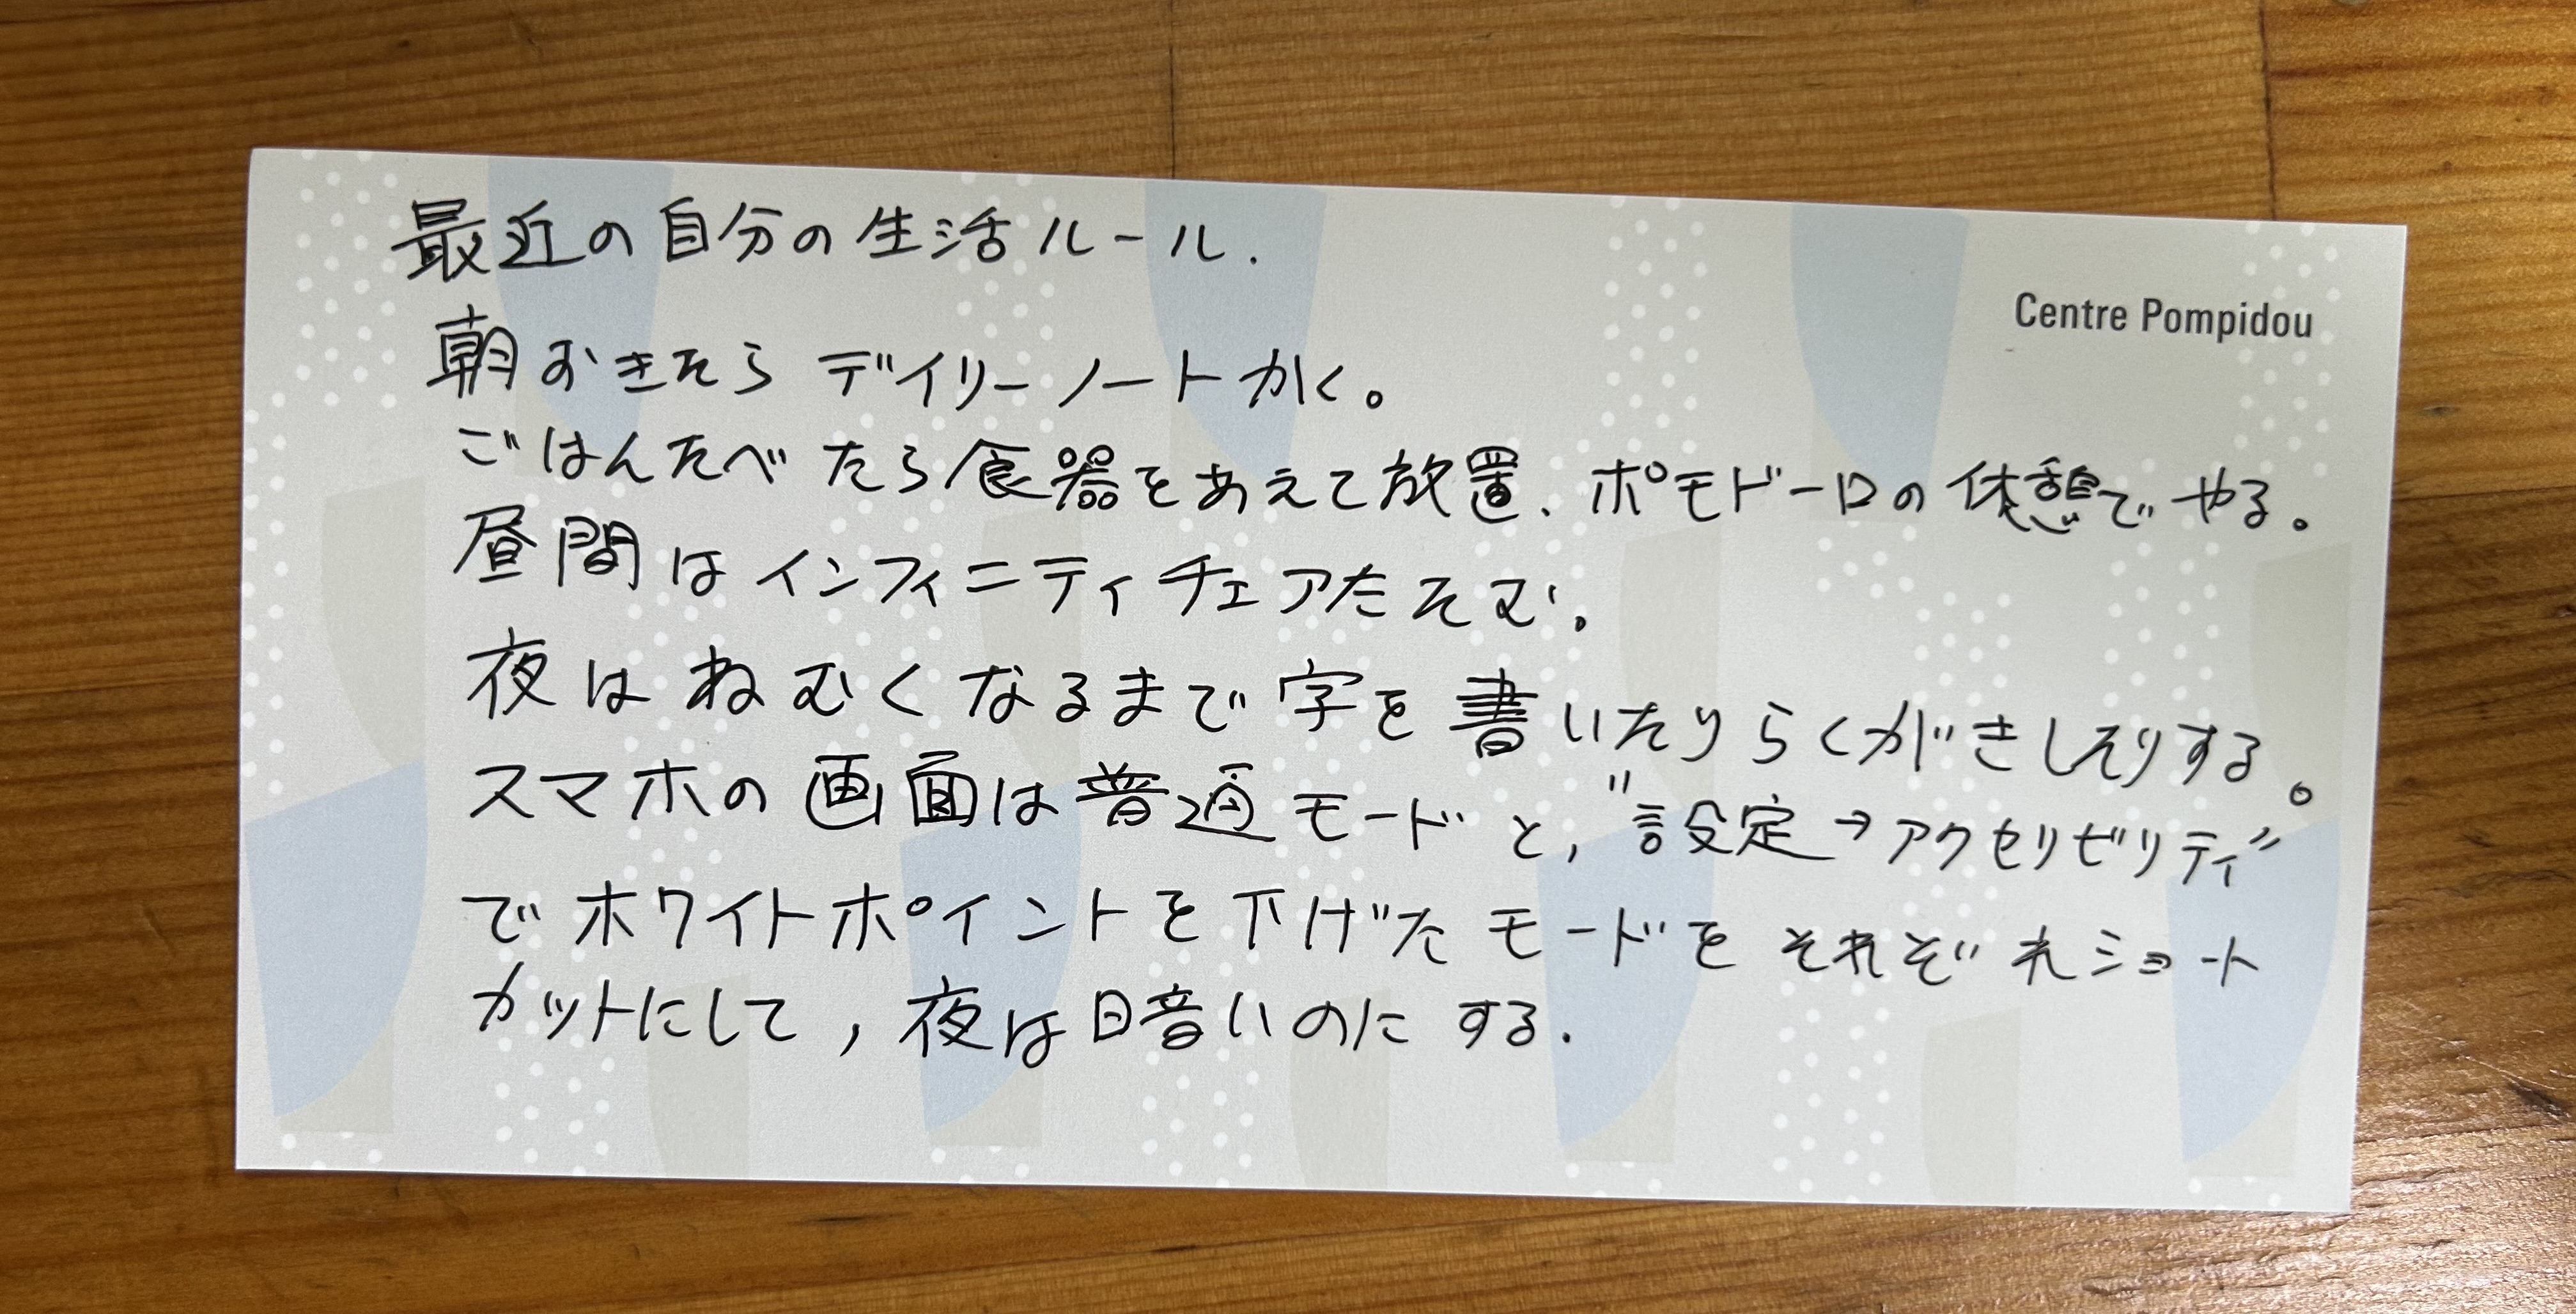 最近の自分の生活ルール.
Centre Pompidou
朝おきたらデイリーノートかく。
ごはんたべたら食器をあえて放置、ポモドーロの休憩でやる。
昼間はインフィニティチェアたたむ。
夜はねむくなるまで字を書いたりらくがきしたりする。
スマホの画面は普通モードと,"設定→アクセリビリティ"
でホワイトポイントを下げたモードをそれぞれショート
カットにして,夜は暗いのにする.